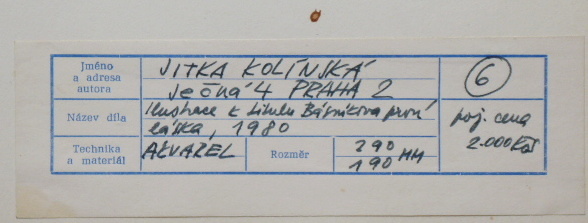 Jméno
a adresa
autora
JITKA KOLÍNSKÁ
Ječná 4 PRAHA 2
6
Název díla
Ilustrace k titulu Básníkova první
láska, 1980
poj. cena
2.000 Kčs
Technika
a materiál
AKVAREL
Rozměr
290
190 MM